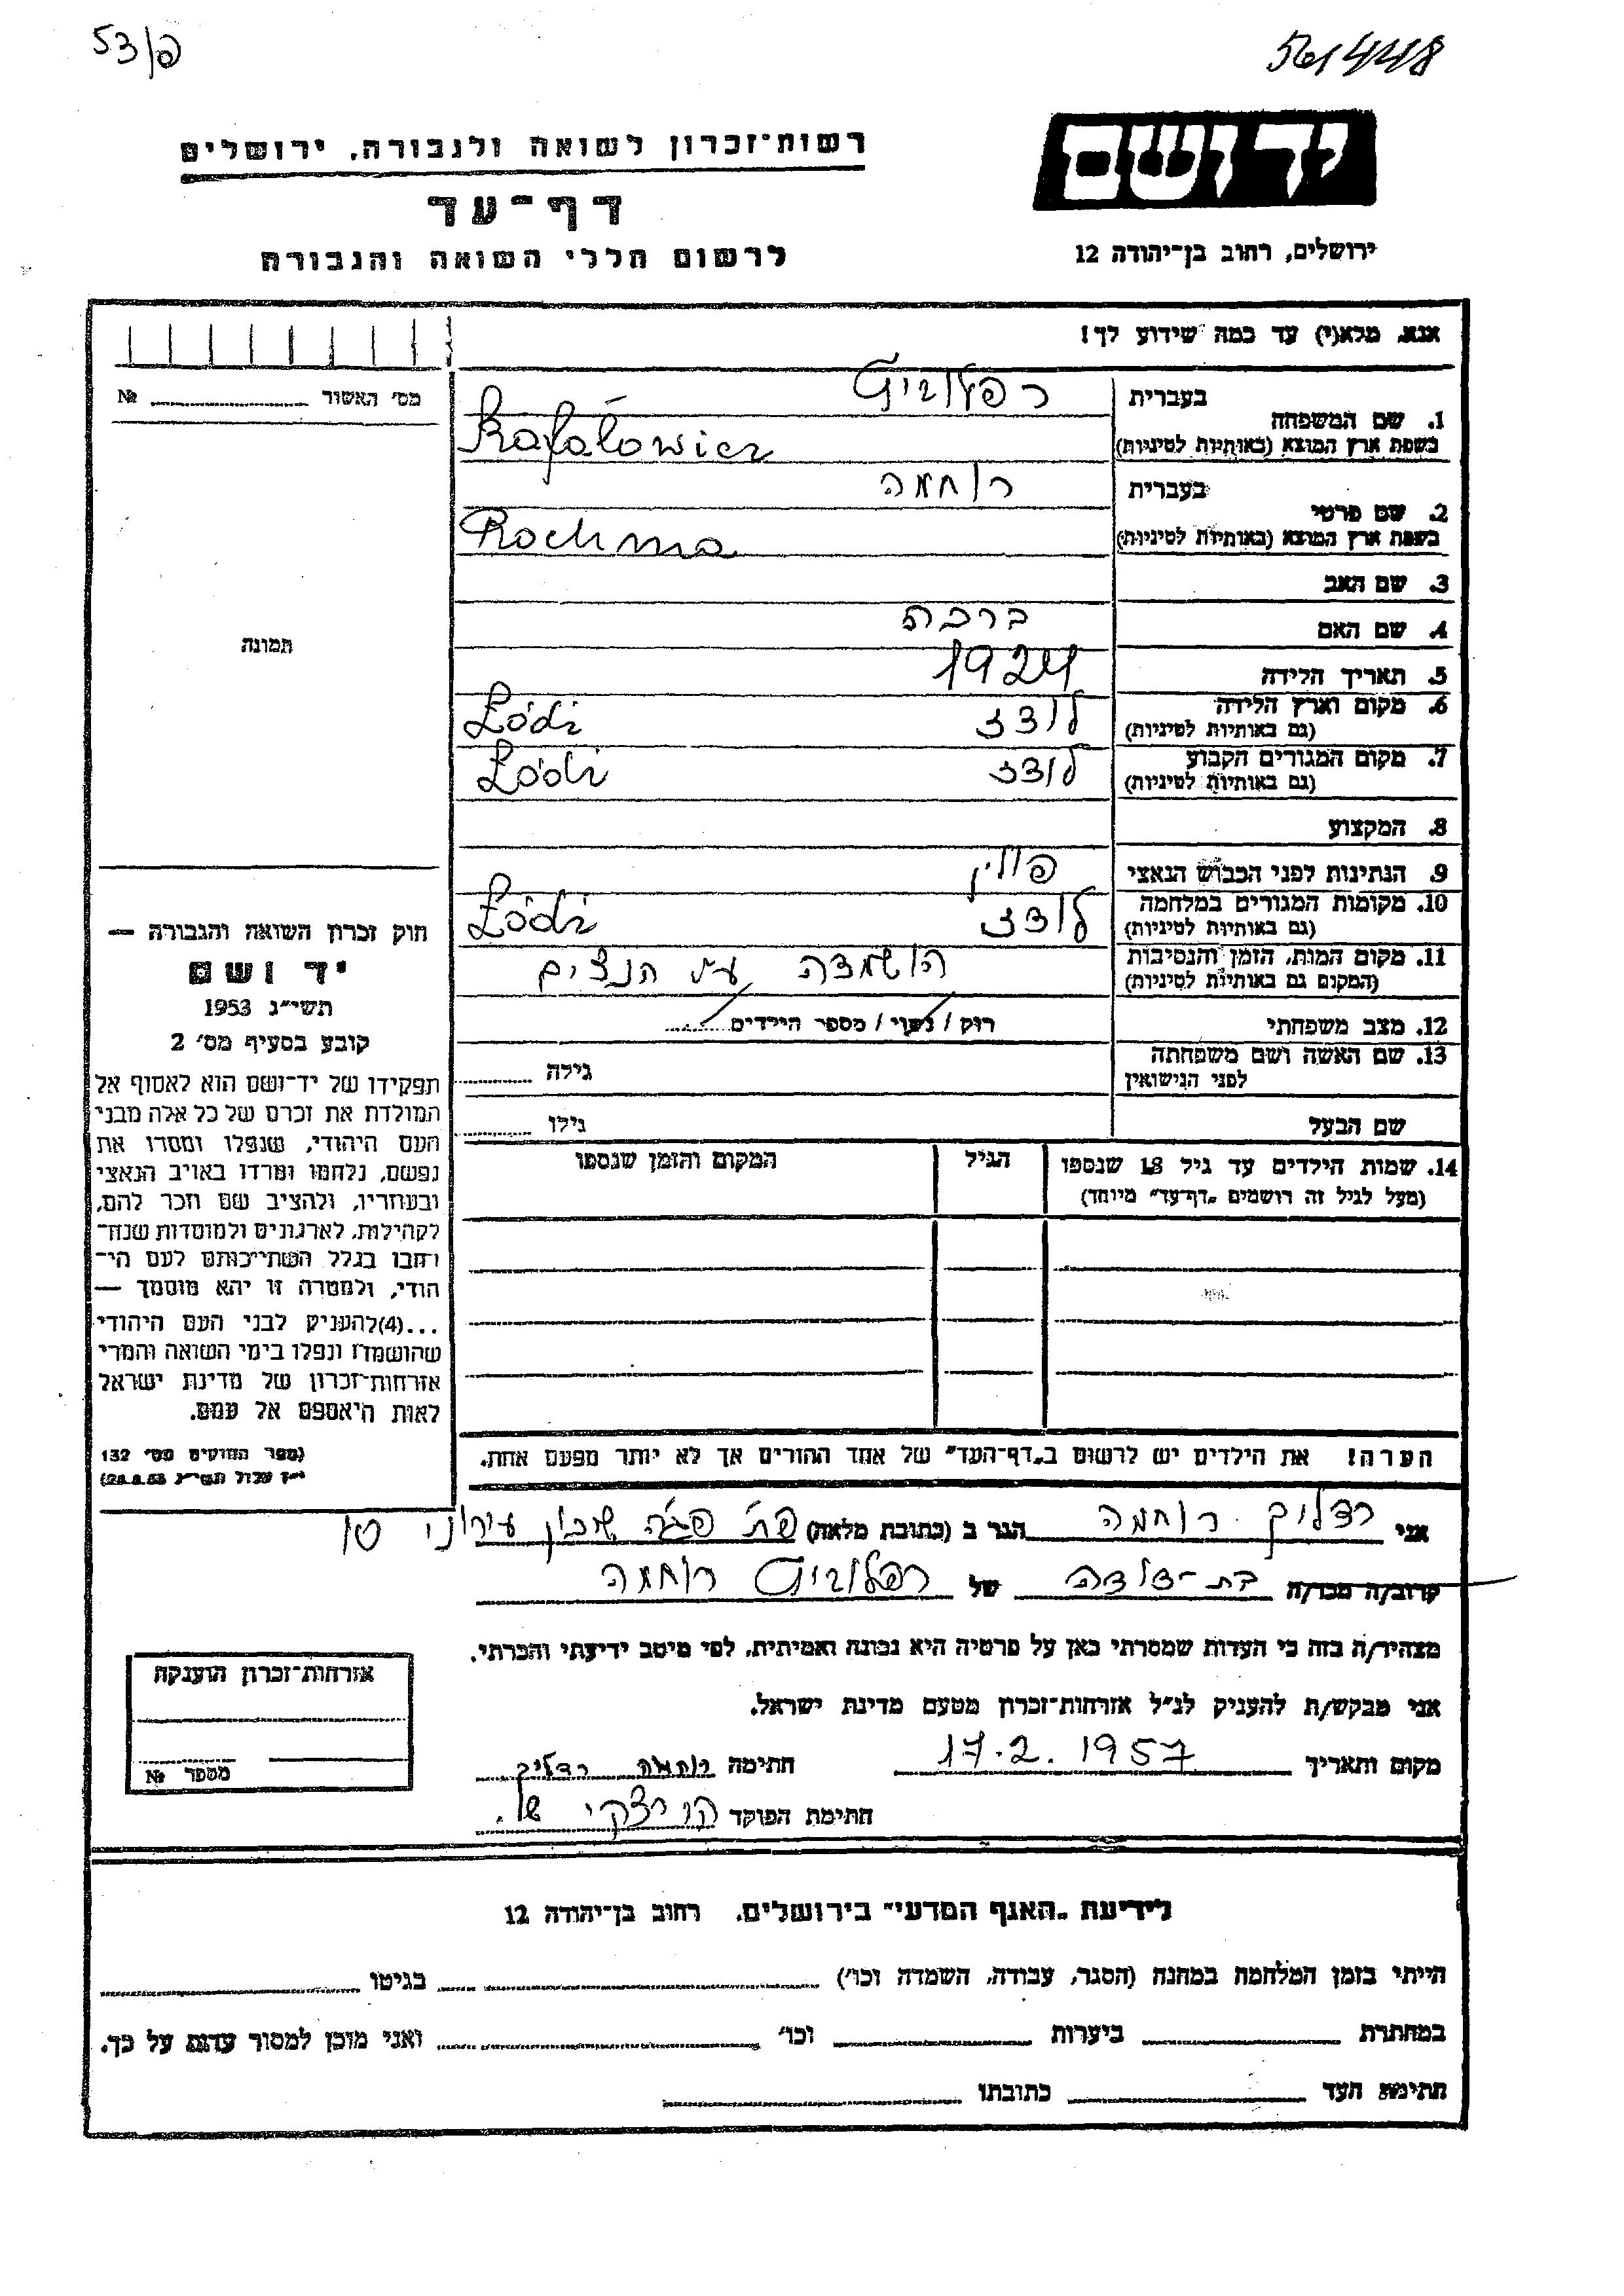 53/פ
561448
רשות־זכרון לשואה ולגבורה, ירושלים
יד ושם
דף־עד
לרשום חללי השואה והגבורה
ירושלים, רחוב בן־יהודה 12
אנא, מלא(י) עד כמה שידוע לך!
מס' האשור № 
1. שם המשפחה בעברית רפלוביץ
בשפת ארץ המוצא (באותיות לטיניות) Rafałowicz
2. שם פרטי בעברית רוחמה
בשפת ארץ המוצא (באותיות לטיניות) Rochma
3. שם האב
4. שם האם ברכה
תמונה
5. תאריך הלידה 1924
6. מקום וארץ הלידה לודז Łódź
(גם באותיות לטיניות)
7. מקום המגורים הקבוע לודז Łódź
(גם באותיות לטיניות)
8. המקצוע
9. הנתינות לפני הכבוש הנאצי פולין
10. מקומות המגורים במלחמה לודז Łódź
(גם באותיות לטיניות)
11. מקום המות, הזמן והנסיבות הושמדה הנצים
(המקום גם באותיות לטיניות)
12. מצב משפחתי רוק / נשוי / מספר הילדים
13. שם האשה ושם משפחתה לפני הנישואין גילה
שם הבעל גילו
14. שמות הילדים עד גיל 18 שנספו הגיל המקום והזמן שנספו
(מעל לגיל זה רושמים „דף־עד" מיוחד)
חוק זכרון השואה והגבורה —
יד ושם
תשי״ג 1953
קובע בסעיף מס' 2
תפקידו של יד־ושם הוא לאסוף אל
המולדת את זכרם של כל אלה מבני
העם היהודי, שנפלו ומסרו את
נפשם, נלחמו ומרדו באויב הנאצי
ובעוזריו, ולהציב שם וזכר להם,
לקהילות, לארגונים ולמוסדות שנח־
רבו בגלל השתייכותם לעם הי־
הודי, ולמטרה זו יהא מוסמך —
...(4)להעניק לבני העם היהודי
שהושמדו ונפלו בימי השואה והמרי
אזרחות־זכרון של מדינת ישראל
לאות היאספם אל עמם.
(ספר החוקים מס' 132
י״ז אלול תשי״ג 28.8.53)
הערה! את הילדים יש לרשום ב„דף־העד" של אחד ההורים אך לא יותר מפעם אחת.
אני רוחמה הגר ב (כתובת מלאה) שכון עירוני
קרוב/ה מכר/ה בת־דודה של רפלוביץ רוחמה
מצהיר/ה בזה כי העדות שמסרתי כאן על פרטיה היא נכונה ואמיתית, לפי מיטב ידיעתי והכרתי.
אני מבקש/ת להעניק לנ״ל אזרחות־זכרון מטעם מדינת ישראל.
מקום ותאריך 17.2.1957 חתימה רוחמה
חתימת הפוקד
אזרחות־זכרון הוענקה
מספר №
לידיעת „האגף המדעי" בירושלים, רחוב בן־יהודה 12
הייתי בזמן המלחמה במחנה (הסגר, עבודה, השמדה וכו') בגיטו
במחתרת ביערות וכו' ואני מוכן למסור עדות על כך.
חתימת העד כתובתו